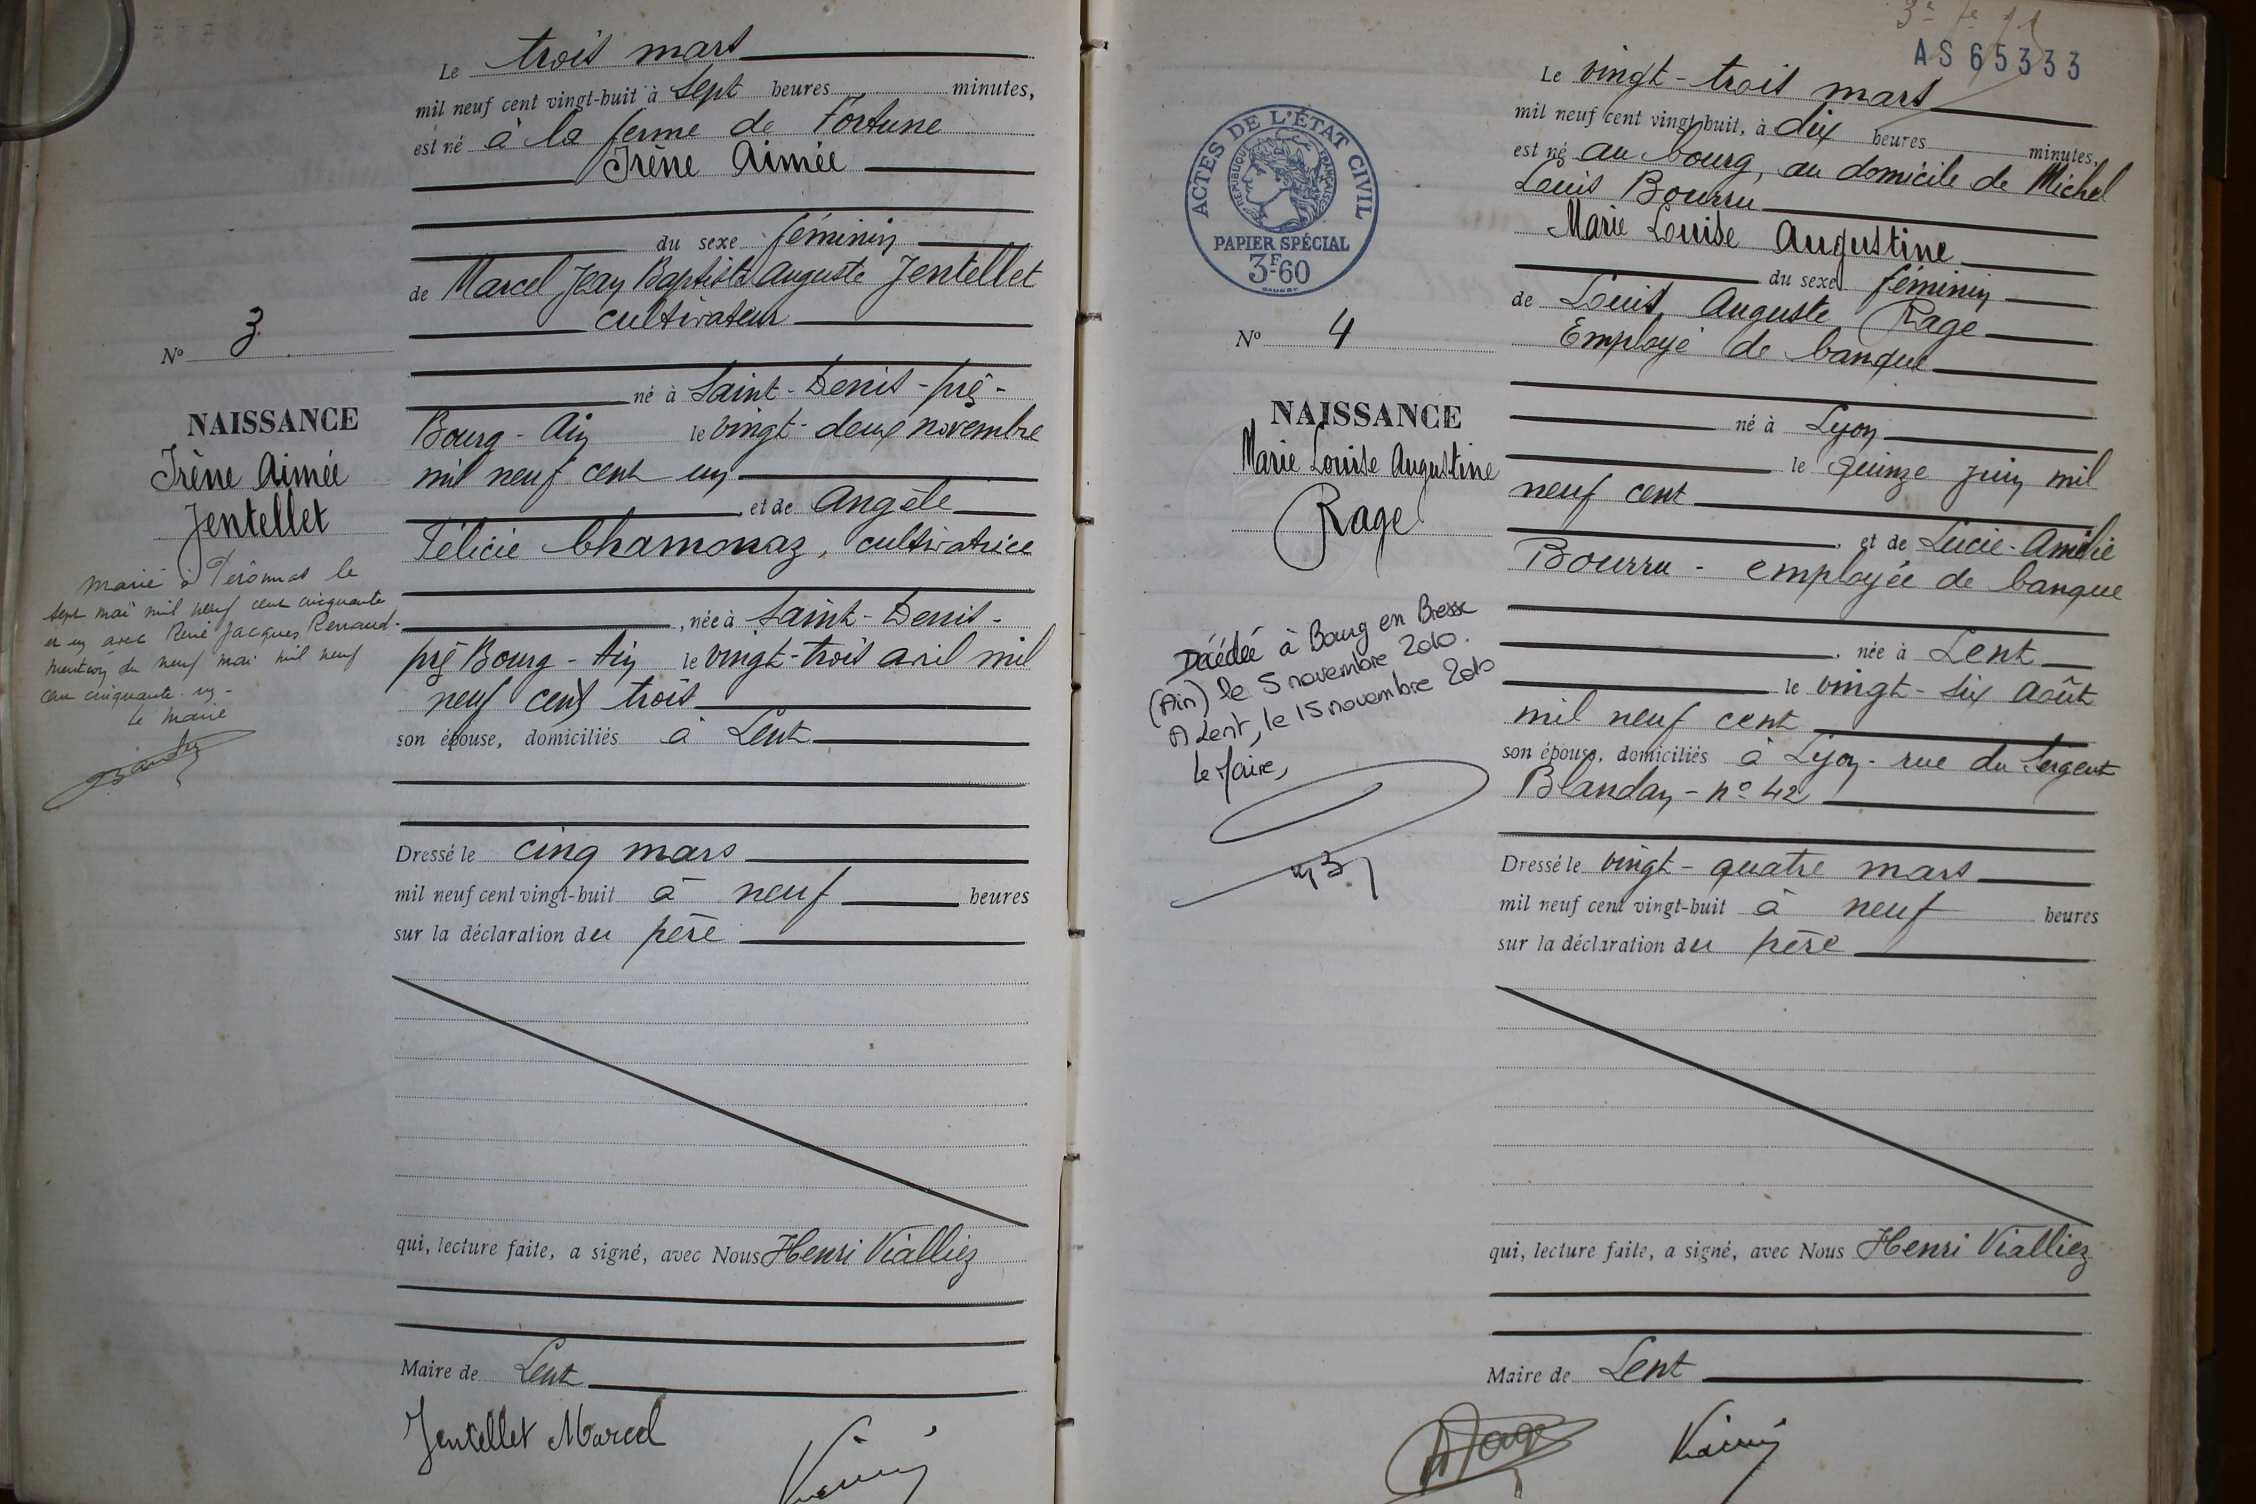 Le trois mars
mil neuf cent vingt-huit à sept heures minutes,
est né à la ferme de Fortune
Irène Aimée
du sexe féminin
de Marcel Jean Baptiste Auguste Jentellet
cultivateur
né à Saint-Denis-près-
Bourg - Ain le vingt-deux novembre
mil neuf cent un
et de Angèle
Félicie Chamonaz, cultivatrice
, née à Saint-Denis-
près Bourg - Ain le vingt-trois avril mil
neuf cent trois
son épouse, domiciliés à Lent
Dressé le cinq mars
mil neuf cent vingt-huit à neuf heures
sur la déclaration du père
qui, lecture faite, a signé, avec Nous Henri Vialliez
Maire de Lent
Jentellet Marcel
No 3
NAISSANCE
Irène Aimée
Jentellet
Marié à Péronnas le
sept mai mil neuf cent cinquante
et un avec René Jacques Renaud-
mention du neuf mai mil neuf
cent cinquante un -
Le Maire
AS 65333
Le vingt-trois mars
mil neuf cent vingt-huit, à dix heures minutes,
est né au bourg, au domicile de Michel
Louis Bourru
Marie Louise Augustine
du sexe féminin
de Louis, Auguste Rage
Employé de banque
né à Lyon
le quinze juin mil
neuf cent
, et de Lucie-Amélie
Bourru - employée de banque
, née à Lent
le vingt-six août
mil neuf cent
son épouse, domiciliés à Lyon - rue du Sergent
Blandan - no 42
Dressé le vingt-quatre mars
mil neuf cent vingt-huit à neuf heures
sur la déclaration du père
qui, lecture faite, a signé, avec Nous Henri Vialliez
Maire de Lent
ACTES DE L'ÉTAT CIVIL
RÉPUBLIQUE FRANÇAISE
PAPIER SPÉCIAL
3F60
No 4
NAISSANCE
Marie Louise Augustine
Rage
Décédée à Bourg en Bresse
(Ain) le 5 novembre 2010.
A Lent, le 15 novembre 2010
Le Maire,